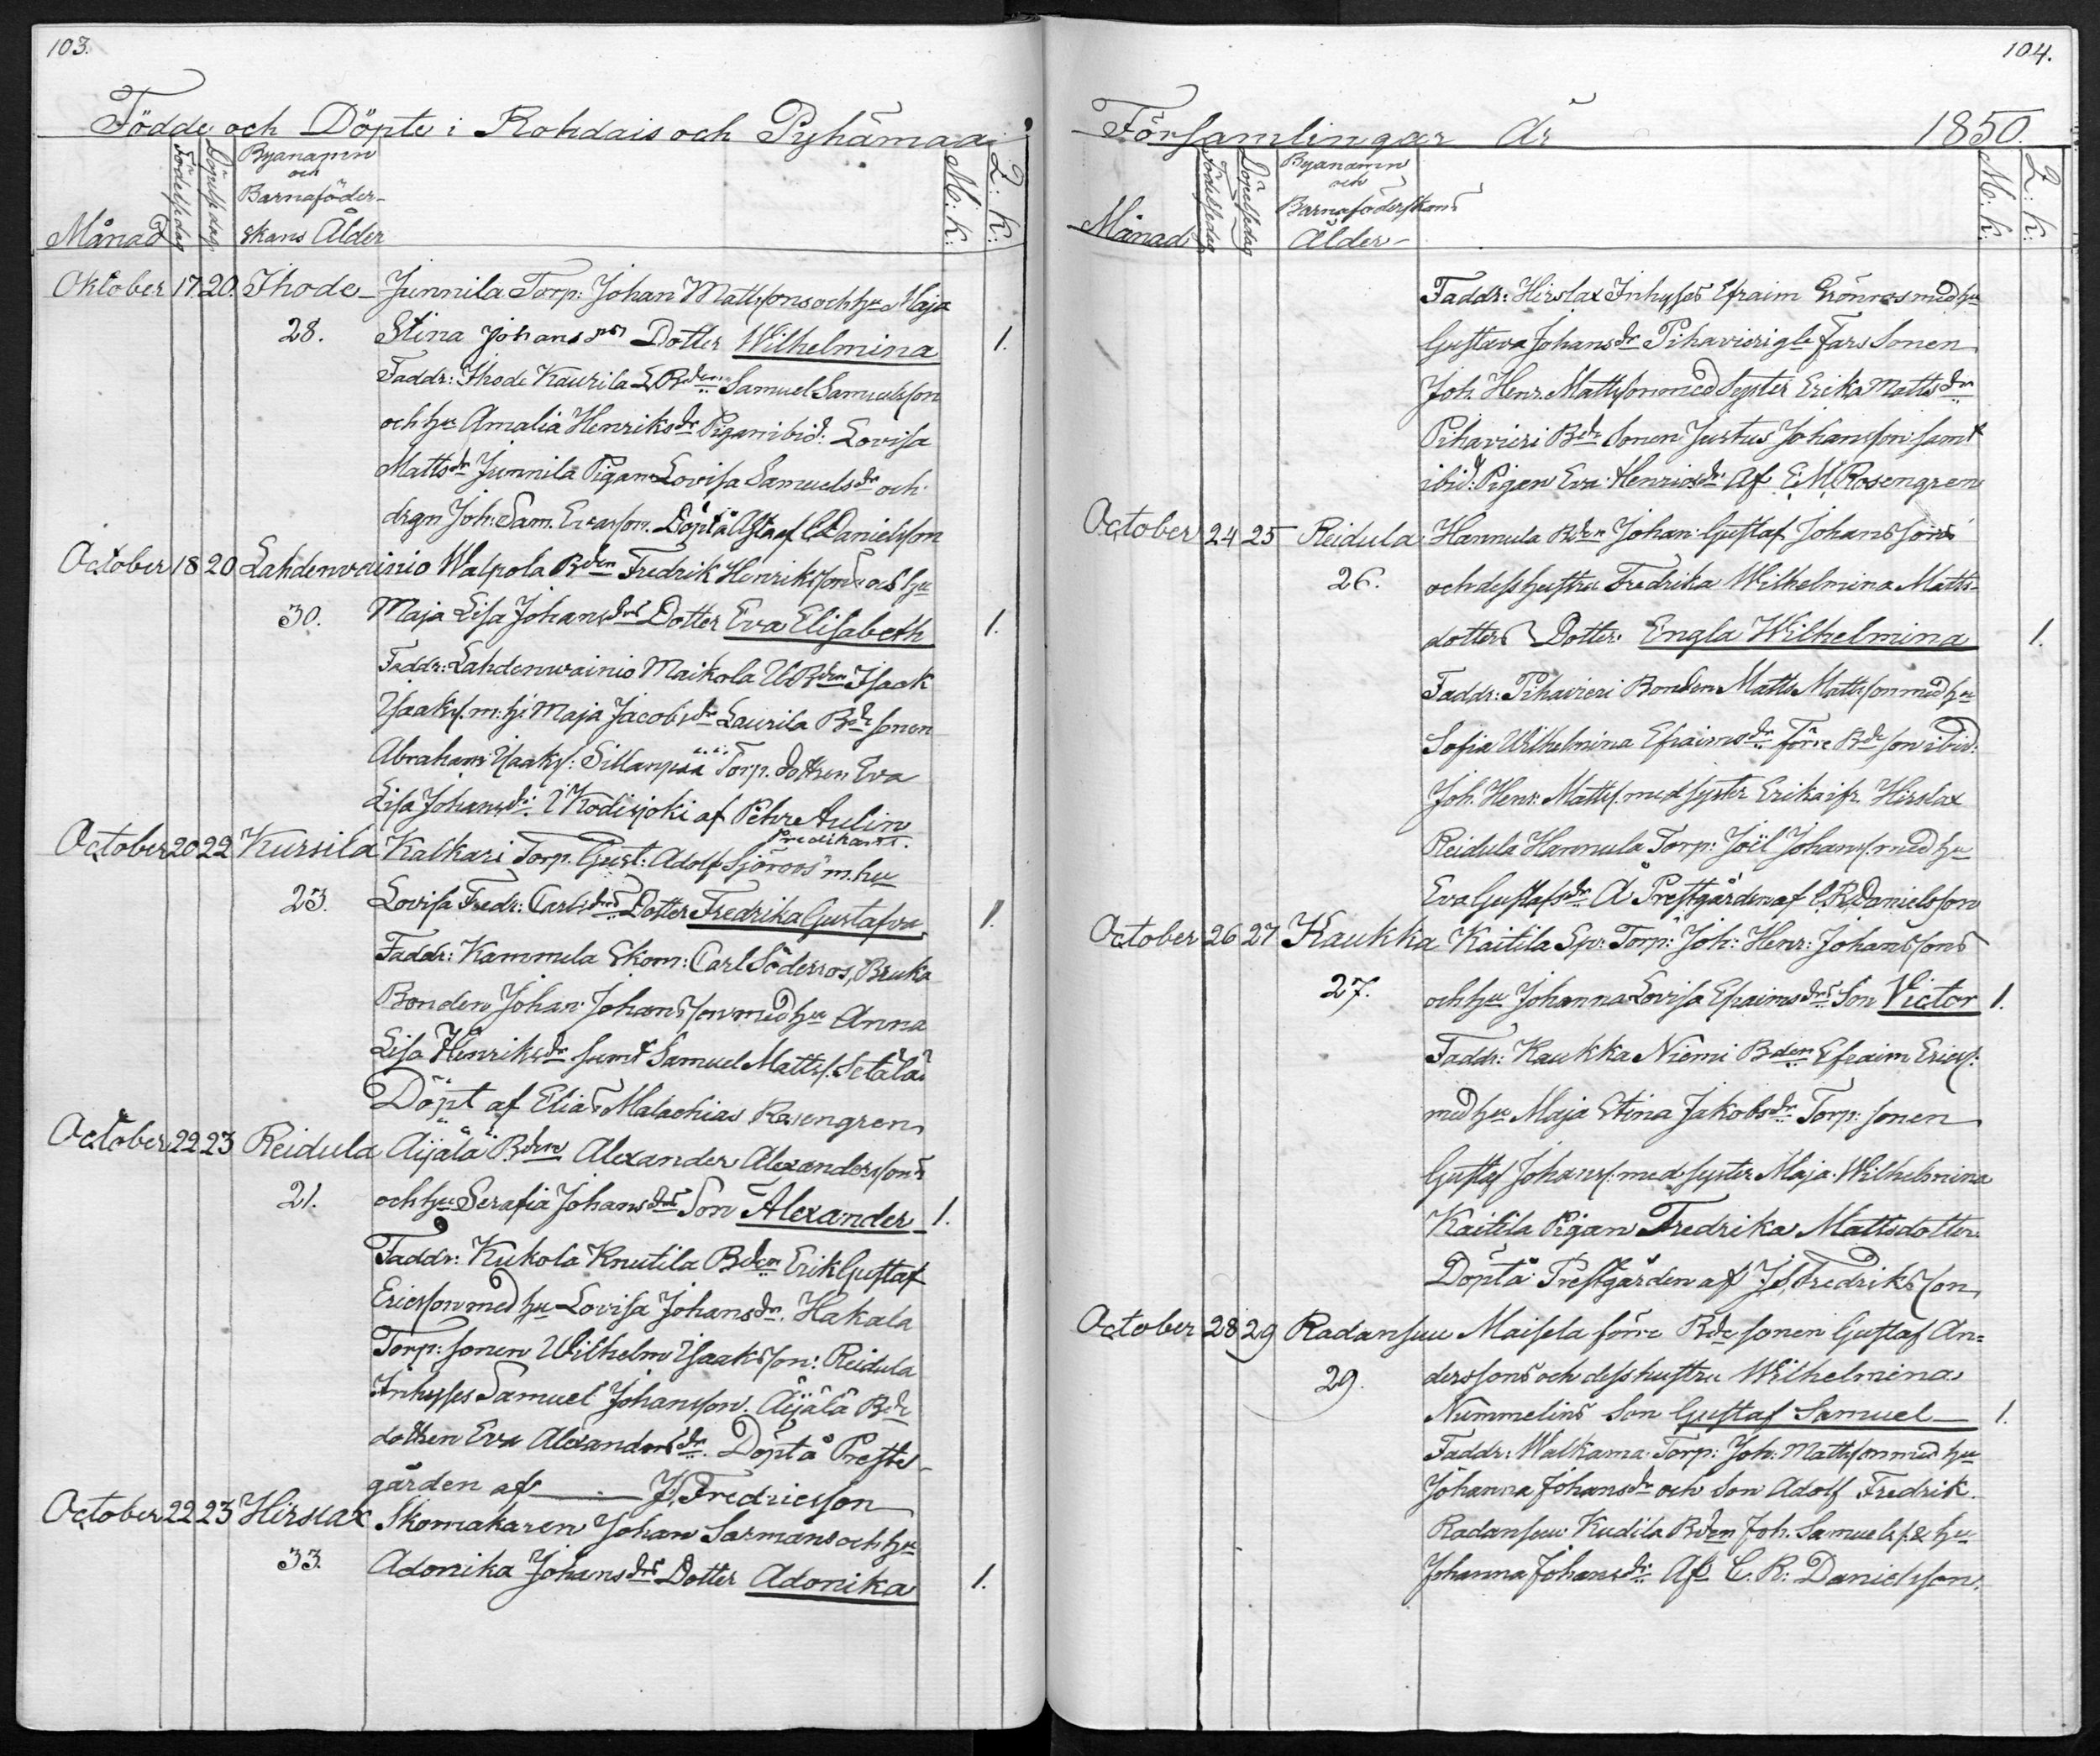 103.
Födde och Döpte i Rohdais och Pyhämaa
Månad
Födelsedag
Döpelsedag
Byanamn
och
Barnaföder-
skans Ålder
M: k:
Q: k:
Oktober 17 20. Ihode Junnila Torp: Johan Mattssons och hu Maja
28. Stina Johansdrs Dotter Wilhelmina 1.
Faddr: Ihode Kaurila Bden Samuel Samuelsson
och hu Amalia Henriksdr Pigan ibid: Lovisa
Mattsdr Junnila Pigan Lovisa Samuelsdr och
drgn Joh: Sam. Ersson. Döpt af Danielsson
October 18 20 Lahdenvainio Walpola Bden Fredrik Henrikssons och hu
30. Maja Lisa Johansdrs Dotter Eva Elisabeth 1.
Faddr: Lahdenwainio Maikola Bden Isaak
Isaakss. m. h: Maja Jacobsdr Laurila Bde sonen
Abraham Isaakss: Sillanpää Torp. dottren Eva
Lisa Johansdr: i Kodisjoki af Pehr Aulin
Predikant.
October 20 22 Kursila Kalkari Torp. Gust: Adolf Sjöroos m. hu
23. Lovisa Fredr: Carlsdrs Dotter Fredrika Gustafva 1.
Faddr: Kammela Skom: Carl Söderros, Bruka
Bonden Johan Johansson med hu Anna
Lisa Henriksdr samt Samuel Mattss. Setälä
Döpt af Elias Malachias Rosengren
October 22 23 Reidula Äijälä Bdens Alexander Alexanderssons
21. och hu Serafia Johansdrs Son Alexander 1.
Faddr: Kukola Knutila Bden Erik Gustaf
Ericsson med hu Lovisa Johansdr. Hakala
Torp: sonen Wilhelm Isaaksson: Reidula
Inhyses Samuel Johansson. Äijälä Bde
dottren Eva Alexandersdr. Döpt å Preste-
gården af J. Fredricsson
October 22 23 Hirslax Skomakaren Johan Sarmans och hu
33. Adonika Johansdrs Dotter Adonika 1.
104.
Församlingar År 1850.
Månad
Födelsedag
Döpelsedag
Byanamn
och
Barnaföderskans
Ålder
M: k:
Q: k:
Faddr: Hirslax Inhyses Efraim Grönroos med hu
Gustava Johansdr Pihavieri gle Fars Sonen
Joh. Henr. Mattsson med Syster Erika Mattsdr
Pihavieri Bde Sonen Justus Johansson samt
ibid: Pigan Eva Henricsdr: Af E. M. Rosengren
October 24 25 Reidula Hannula Bden Johan Gustaf Johanssons
26. och dess hustru Fredrika Wilhelmina Matts-
dotters Dotter Engla Wilhelmina 1.
Faddr: Pihavieri Bonden Matts Mattsson med hu
Sofia Wilhelmina Efraimsdr förre Bde son ibid:
Joh. Henr: Mattss. med syster Erika ifr. Hirslax
Reidula Hannula Torp: Joel Johanss. med hu
Eva Gustafsdr Å Prestgården af C. R. Danielsson
October 26 27 Kaukka Kaitila Torp: Joh: Henr: Johanssons
27. och hu Johanna Lovisa Efraimsdrs Son Victor 1.
Faddr: Kaukka Niemi Bden Efraim Ericss:
med hu Maja Stina Jakobsdr Torp: sonen
Gustaf Johanss: med syster Maja Wilhelmina
Kaitila Pigan Fredrika Mattsdotter
Döpt å Prestgården af J. Fredriksson
October 28 29 Radansuu Maisela förre Bde sonen Gustaf An=
29. derssons och dess hustru Wilhelmina
Nummelins Son Gustaf Samuel 1.
Faddr: Walkama Torp: Joh: Mattsson med hu
Johanna Johansdr och son Adolf Fredrik.
Radansuu Kudila Bden Joh. Samuelss. & hu
Johanna Johansdr: Af C. R: Danielsson.